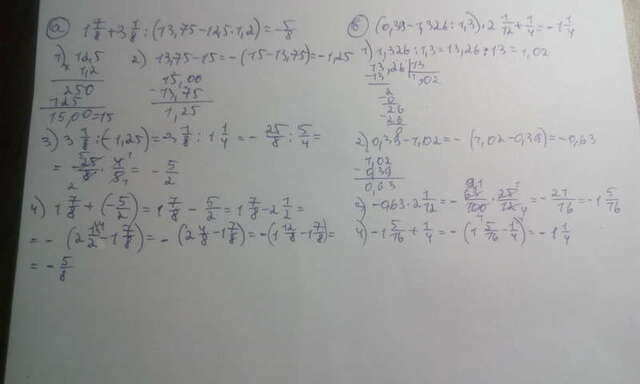 а) 1 7/8 + 3 1/8 : (13,75 - 12,5 · 1,2) = -5/8
1) 12,5
× 1,2
250
125
15,00 = 15
2) 13,75 - 15 = -(15 - 13,75) = -1,25
15,00
- 13,75
1,25
3) 3 1/8 : (-1,25) = -3 1/8 : 1 1/4 = -25/8 : 5/4 =
= -25/8 · 4/5 = -5/2
4) 1 7/8 + (-5/2) = 1 7/8 - 5/2 = 1 7/8 - 2 1/2 =
= -(2 1/2 - 1 7/8) = -(2 4/8 - 1 7/8) = -(1 12/8 - 1 7/8) =
= -5/8
(0,39 - 1,326 : 1,3) · 2 1/12 + 1/4 = -1 1/4
1) 1,326 : 1,3 = 13,26 : 13 = 1,02
13,26 13
- 13 1,02
26
- 26
0
2) 0,39 - 1,02 = -(1,02 - 0,39) = -0,63
1,02
- 0,39
0,63
3) -0,63 · 2 1/12 = -63/100 · 25/12 = -21/16 = -1 5/16
4) -1 5/16 + 1/4 = -(1 5/16 - 1/4) = -1 1/4